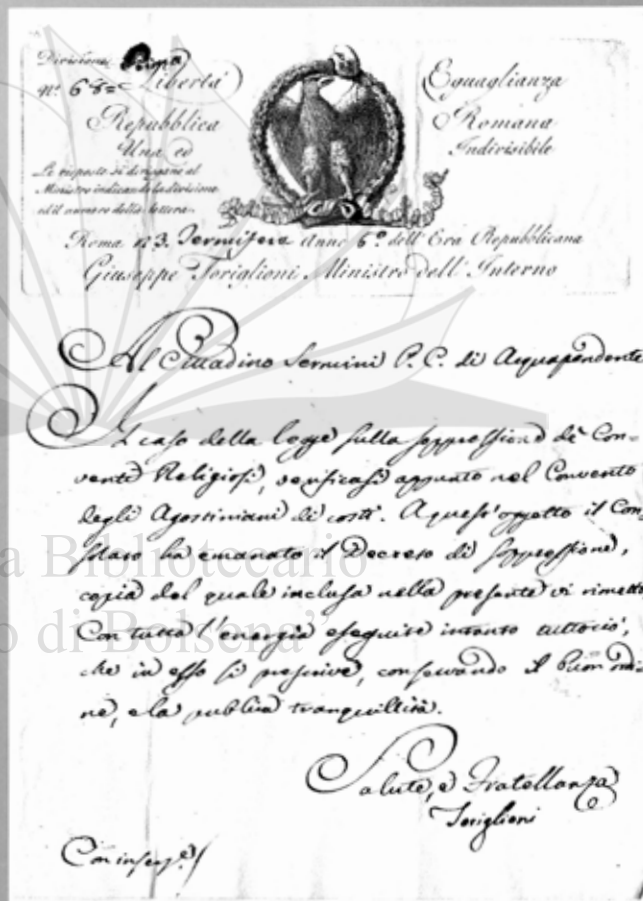 Divisione Prima
N.º 68= Libertà
Eguaglianza
Repubblica
Romana
Una ed
Indivisibile
Le risposte si dirigano al
Ministro indicando la divisione
ed il numero della lettera.
Roma li 3. Termifero Anno 6º dell'Era Repubblicana
Giuseppe Toriglioni Ministro dell'Interno
Al Cittadino Sermini P. C. di Acquapendente
Il caso della legge sulla soppressione de' Con=
venti Religiosi, verificasi appunto nel Convento
degli Agostiniani di costì. A quest'oggetto il Con=
solato ha emanato il Decreto di soppressione,
copia del quale inclusa nella presente vi rimetto.
Con tutta l'energia eseguite intanto tuttociò,
che in esso si prescrive, conservando il buon ordi
ne, e la publica tranquillità.
Salute, e Fratellanza
Toriglioni
a Bibliotecario
o di Bolsena"